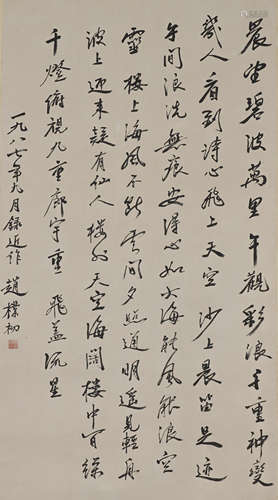 晨望碧波萬里午觀彩浪千重神變
幾人看到詩心飛上天空沙上晨留足跡
午間浪洗無痕安得心如大海能風能浪空
靈樓上海風不斷雲間夕照通明遙見輕舟
波上迎來疑有仙人樓外天空海闊樓中
千燈俯視九重廊宇重飛蓋流星
一九八七年九月録近作趙樸初